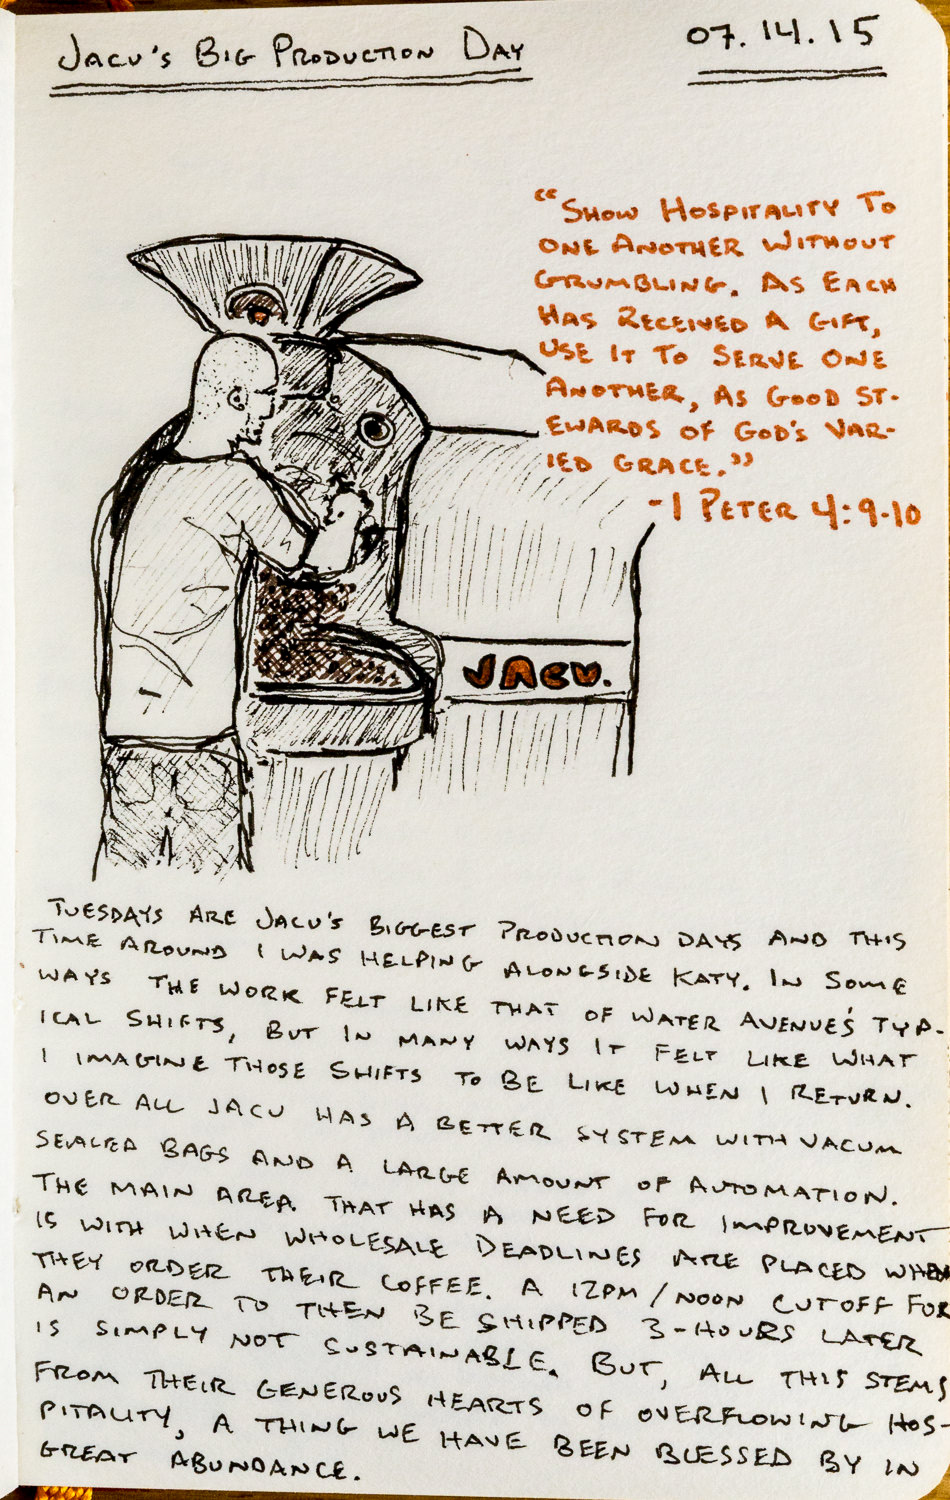 JACU'S BIG PRODUCTION DAY
07.14.15
"SHOW HOSPITALITY TO
ONE ANOTHER WITHOUT
GRUMBLING. AS EACH
HAS RECEIVED A GIFT,
USE IT TO SERVE ONE
ANOTHER, AS GOOD ST-
EWARDS OF GOD'S VAR-
IED GRACE."
-1 PETER 4:9-10
JACU.
TUESDAYS ARE JACU'S BIGGEST PRODUCTION DAYS AND THIS
TIME AROUND I WAS HELPING ALONGSIDE KATY. IN SOME
WAYS THE WORK FELT LIKE THAT OF WATER AVENUE'S TYP-
ICAL SHIFTS, BUT IN MANY WAYS IT FELT LIKE WHAT
I IMAGINE THOSE SHIFTS TO BE LIKE WHEN I RETURN.
OVER ALL JACU HAS A BETTER SYSTEM WITH VACUM
SEALED BAGS AND A LARGE AMOUNT OF AUTOMATION.
THE MAIN AREA THAT HAS A NEED FOR IMPROVEMENT
IS WITH WHEN WHOLESALE DEADLINES ARE PLACED WHEN
THEY ORDER THEIR COFFEE. A 12PM/NOON CUTOFF FOR
AN ORDER TO THEN BE SHIPPED 3-HOURS LATER
IS SIMPLY NOT SUSTAINABLE. BUT, ALL THIS STEMS
FROM THEIR GENEROUS HEARTS OF OVERFLOWING HOS-
PITALITY, A THING WE HAVE BEEN BLESSED BY IN
GREAT ABUNDANCE.